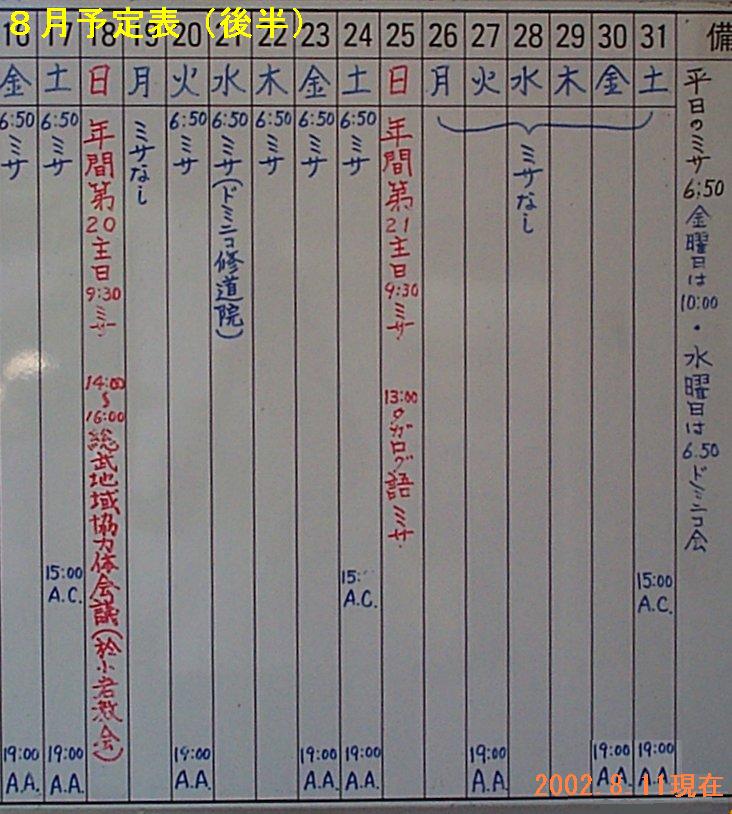 ８月予定表（後半）
16 17 18 19 20 21 22 23 24 25 26 27 28 29 30 31 備
金 土 日 月 火 水 木 金 土 日 月 火 水 木 金 土
6:50 ミサ
19:00 A.A.
6:50 ミサ
15:00 A.C.
19:00 A.A.
年間第20主日 9:30 ミサ
14:00〜16:00 総武地域協力体会議(於小岩教会)
ミサなし
6:50 ミサ
19:00 A.A.
6:50 ミサ(ドミニコ修道院)
6:50 ミサ
6:50 ミサ
19:00 A.A.
6:50 ミサ
15: A.C.
19:00 A.A.
年間第21主日 9:30 ミサ
13:00 タガログ語 ミサ
ミサなし
19:00 A.A.
19:00 A.A.
15:00 A.C.
19:00 A.A.
平日のミサ 6:50 金曜日は 10:00・水曜日は 6.50 ドミニコ会
2002. 8. 11現在